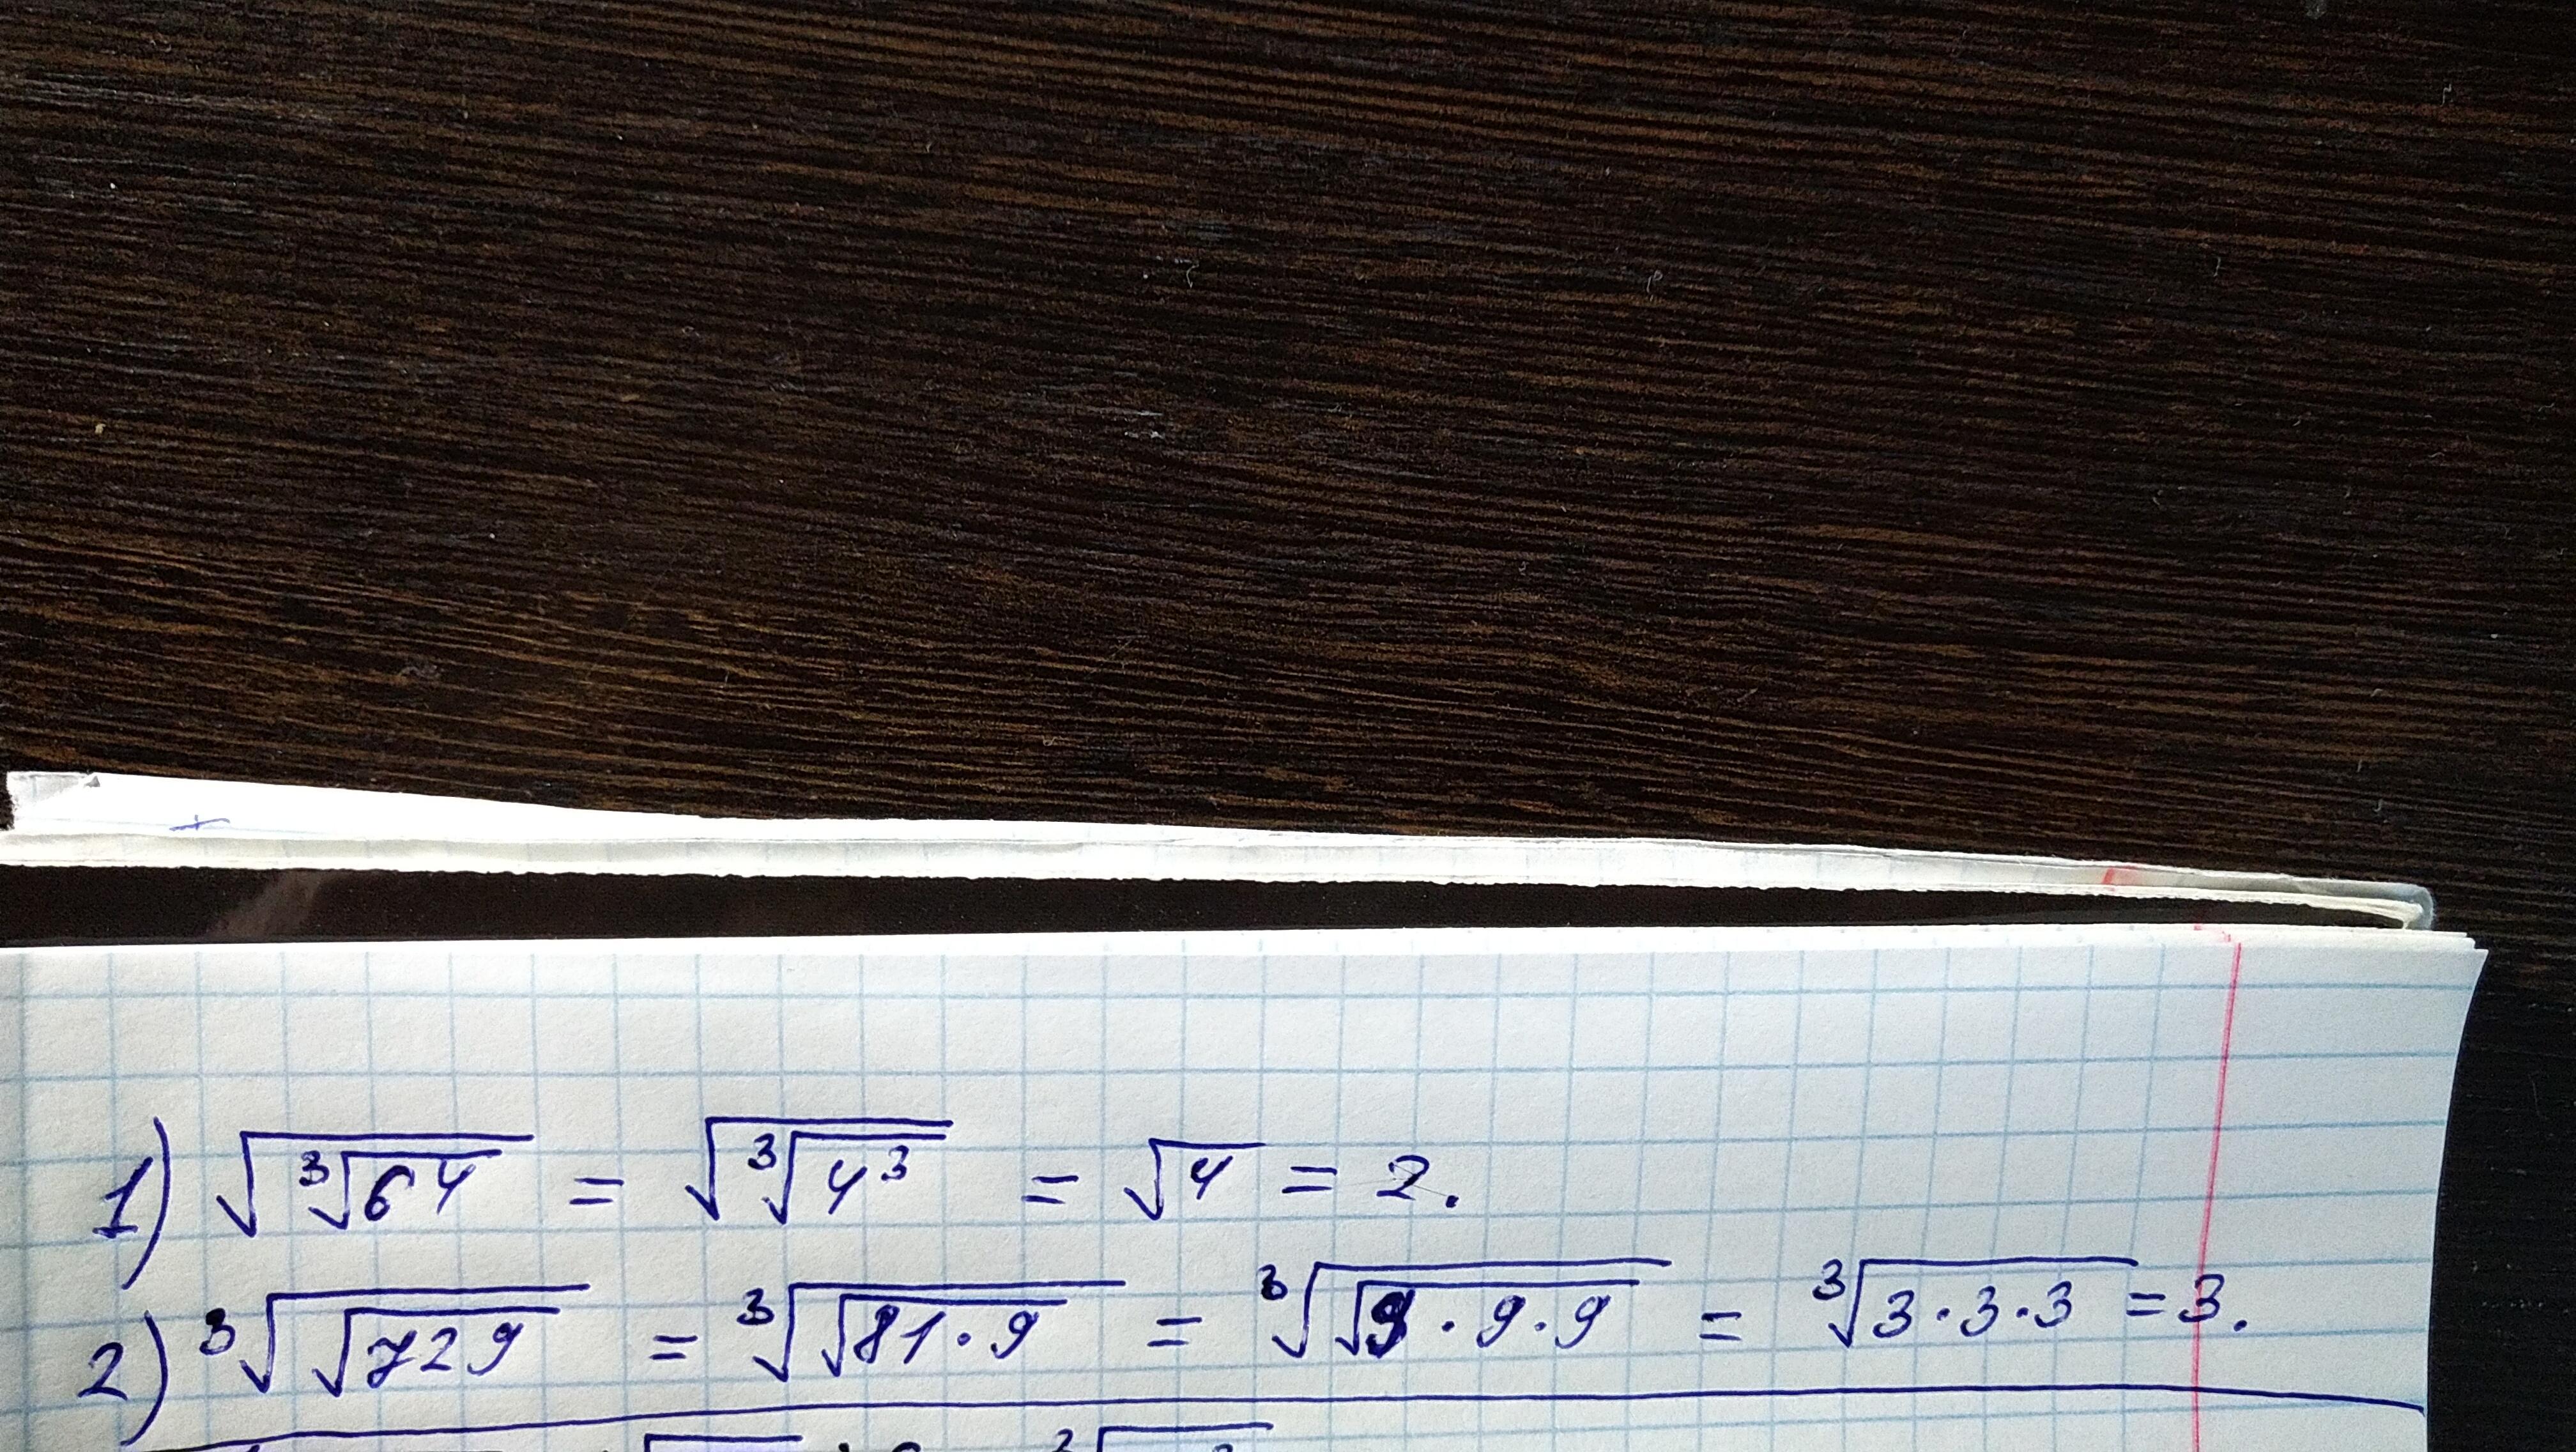 1) √(³√64) = √(³√4³) = √4 = 2.
2) ³√(√729) = ³√(√81·9) = ³√(√9·9·9) = ³√3·3·3 = 3.